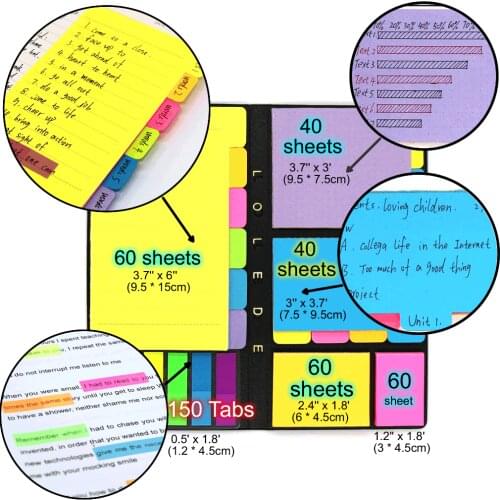 1. Come to a close.
2. face up to
3. get ahead of
4. heart to heart
5. in a moment
6. go all out
7. do a good job
8. come to life
9. cheer up
bring into action
at sight of
word 2
word 3
word 4
word 5
10% 20% 30% 40% 50% 60% 70%
Text 2
Text 3
Text 4
Text 5
Text 6
Text 7
40
sheets
3.7" x 3'
(9.5 * 7.5cm)
60 sheets
3.7" x 6"
(9.5 * 15cm)
LOLEDE
40
sheets
3" x 3.7'
(7.5 * 9.5cm)
loving children.
A. collega life in the Internet
B. Too much of a good thing
project
Unit 1.
150 Tabs
0.5' x 1.8'
(1.2 * 4.5cm)
60
sheets
2.4" x 1.8'
(6 * 4.5cm)
60
sheet
1.2" x 1.8'
(3 * 4.5cm)
I spent teaching
u, I repeat the same
do not interrupt me listen to me
When you were small, I had to read to you
times the same story until you get to sleep W
to have a shower, neither shame me nor so
Remember when I had to chase you
invented, in order that you wanted to b
new technologies give me the neces
me with your mocking smile